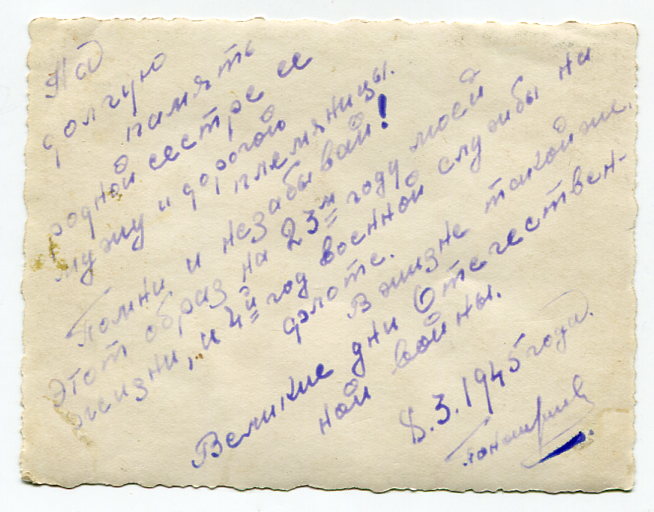 На
долгую
память
родной сестре ее
мужу и дорогой
племяницы.
Помни и незабывай!
Этот образ на 23м году моей
жизни, и 4й год военной службы на
флоте. В жизне такой же.
Великие дни Отечествен-
ной войны.
8.3.1945 года.